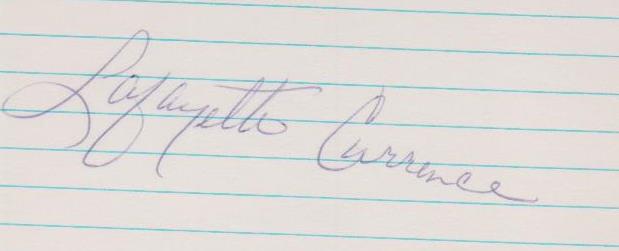 Lafayette Currence